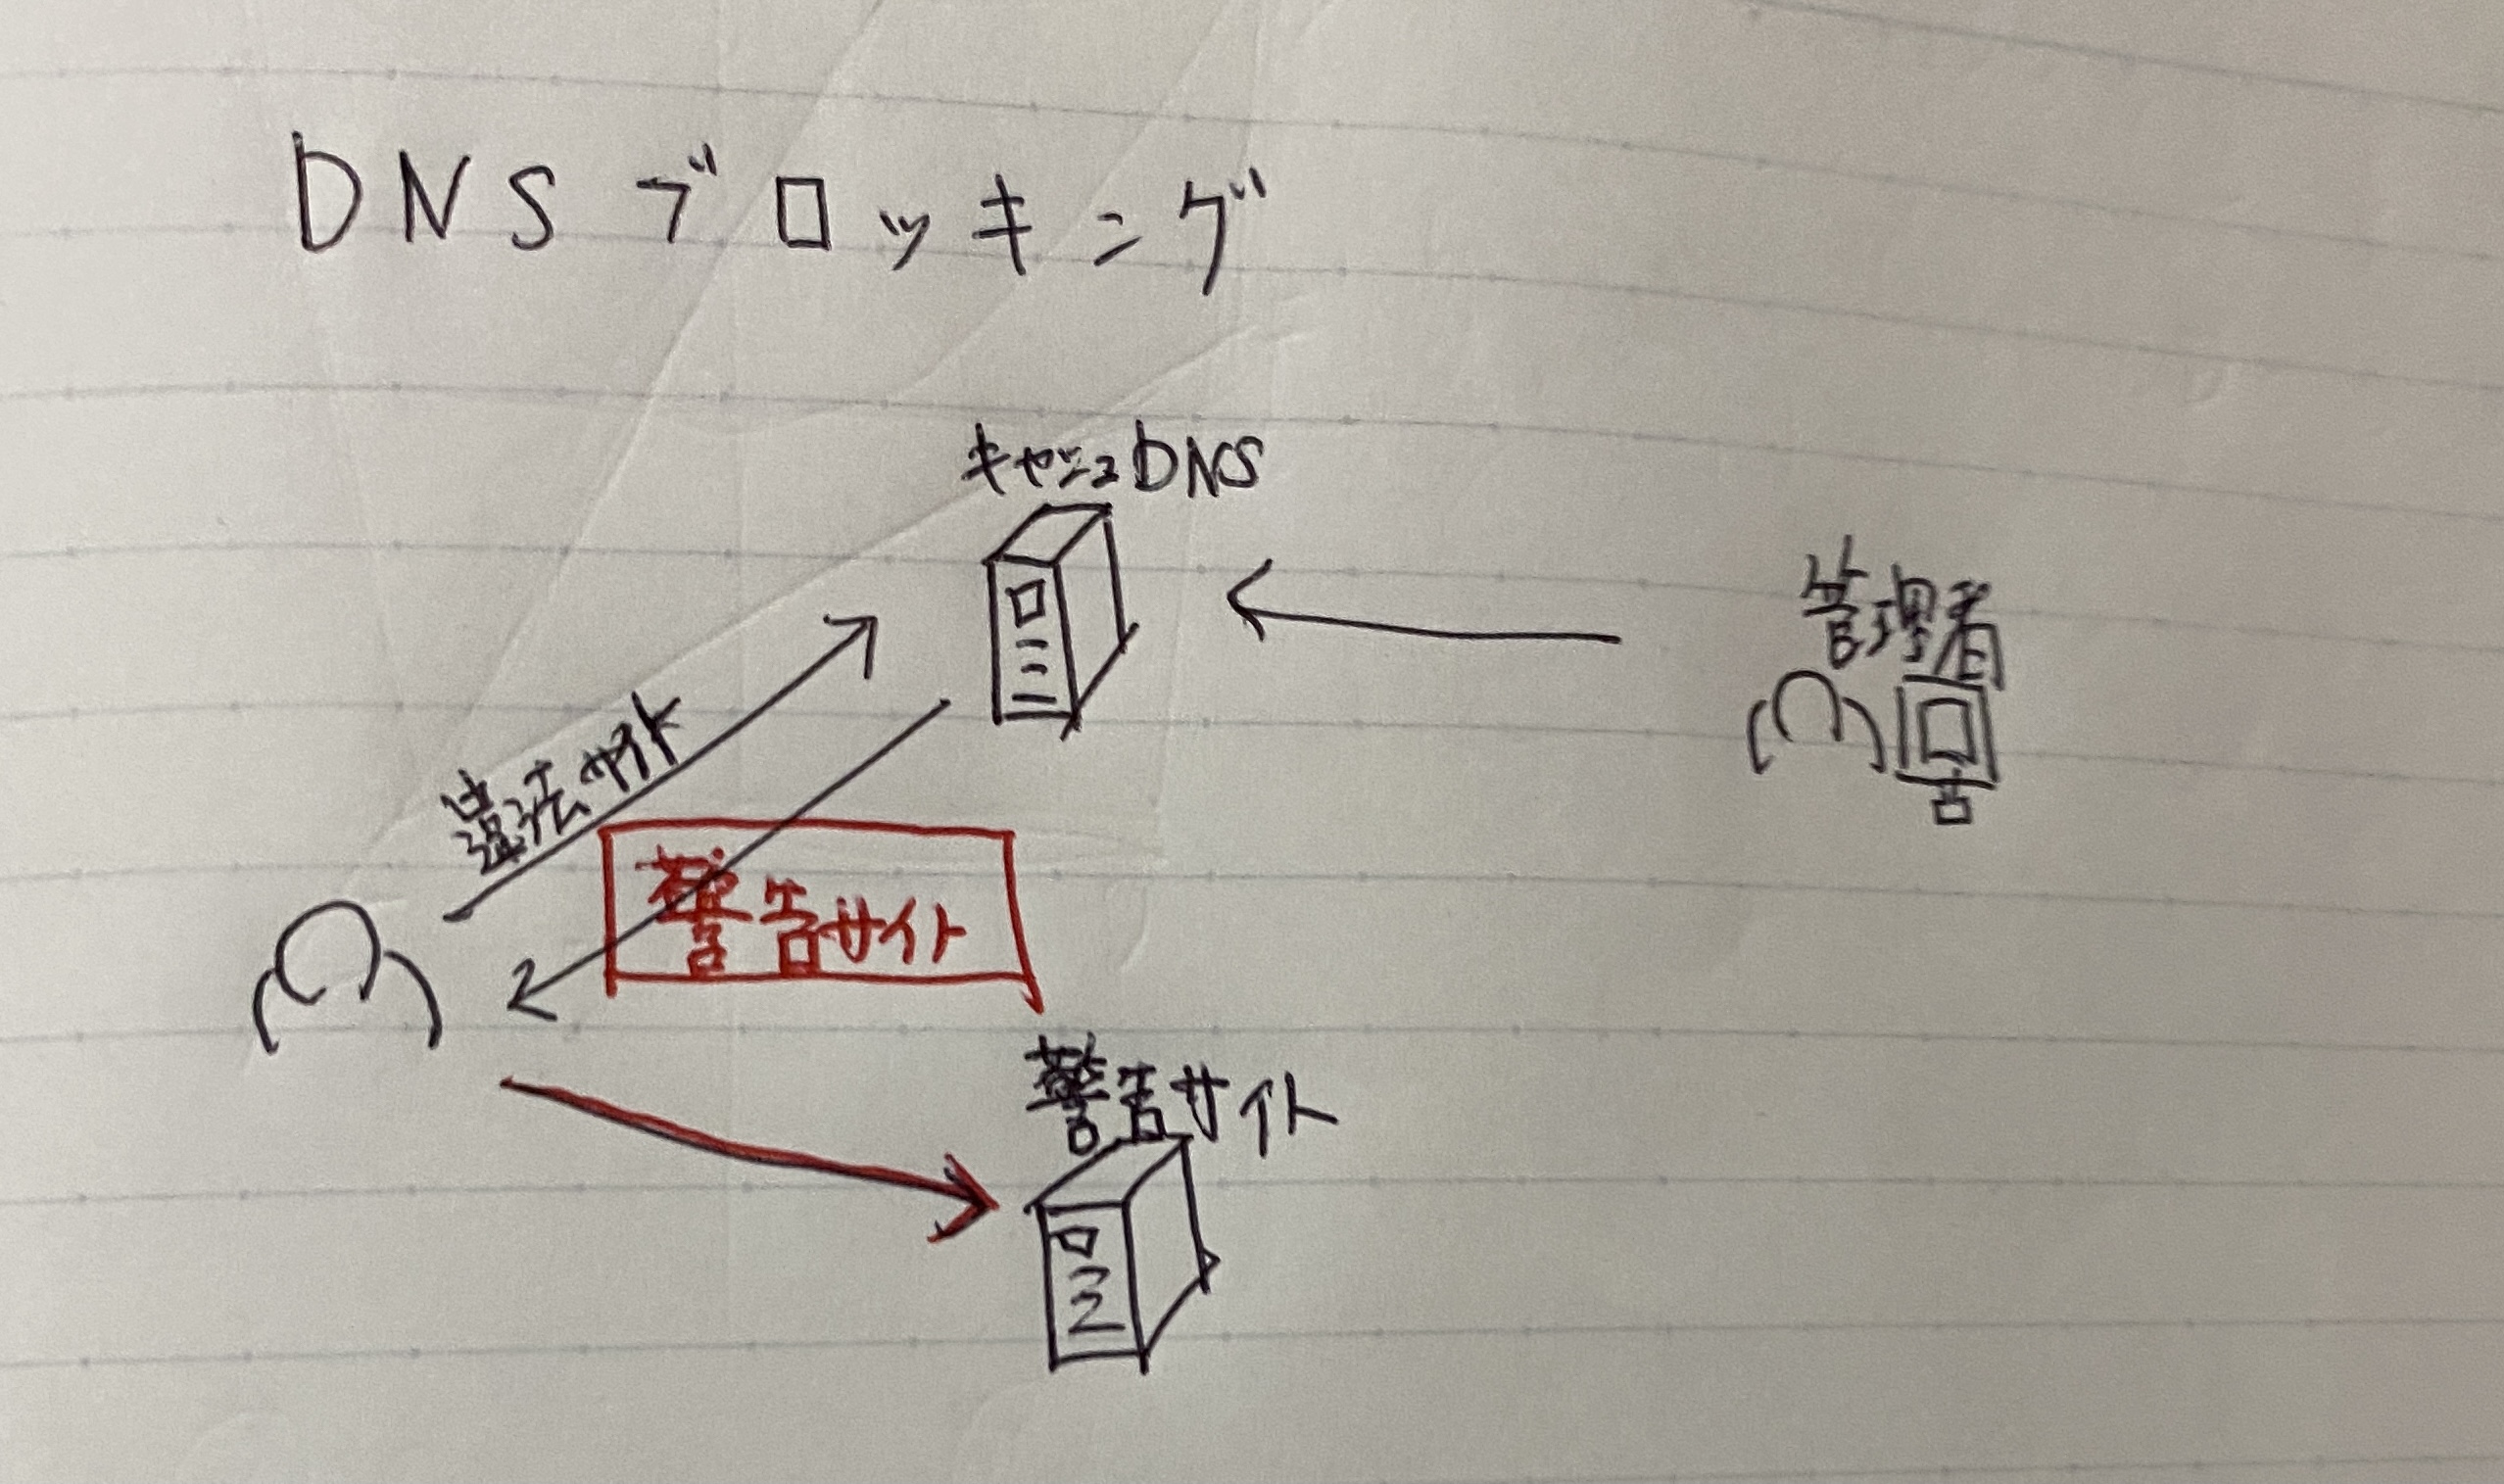 DNSブロッキング
キャッシュDNS
管理者
違法サイト
警告サイト
警告サイト